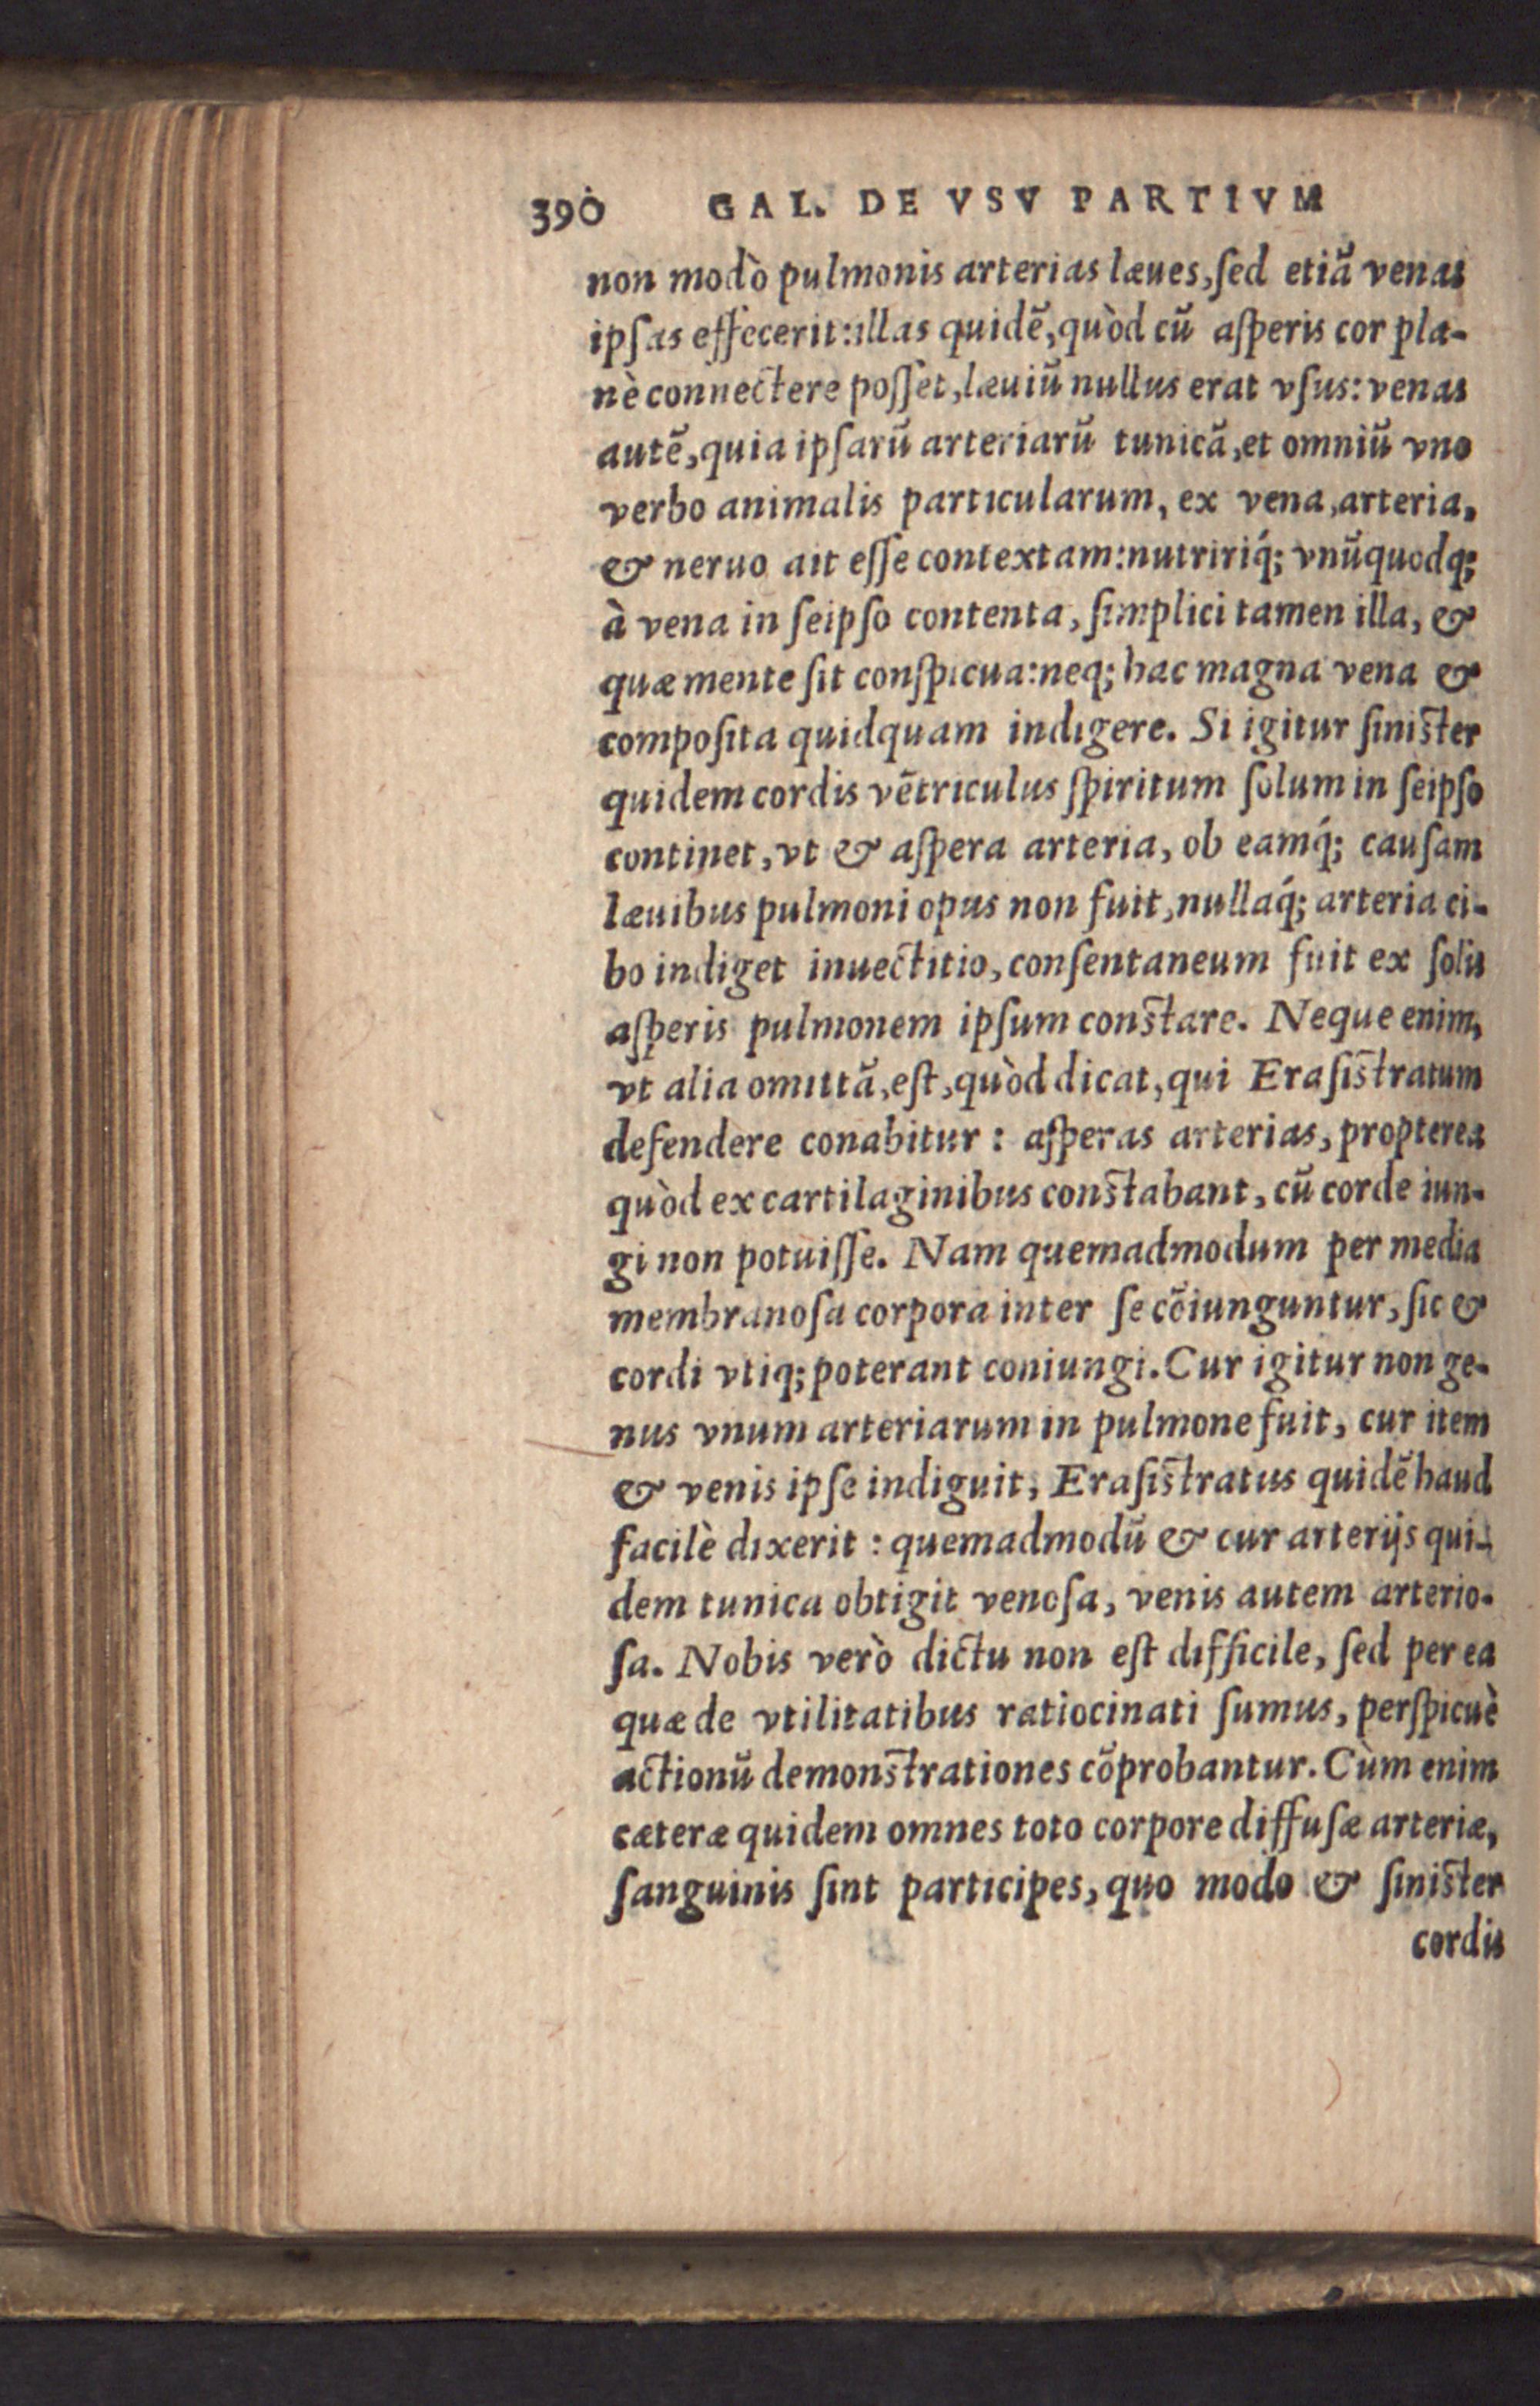 390 GAL. DE VSV PARTIVM
non modò pulmonis arterias læues, ſed etiã venas
ipſas effecerit: illas quidẽ, quòd cũ aſperis cor pla-
nè connectere poſſet, læuiũ nullus erat vſus: venas
autẽ, quia ipſarũ arteriarũ tunicã, et omniũ vno
verbo animalis particularum, ex vena, arteria,
& neruo ait eſſe contextam: nutririq́; vnũquodq;
à vena in ſeipſo contenta, ſimplici tamen illa, &
quæ mente ſit conſpicua: neq; hac magna vena &
compoſita quidquam indigere. Si igitur ſiniſter
quidem cordis vẽtriculus ſpiritum ſolum in ſeipſo
continet, vt & aſpera arteria, ob eamq́; cauſam
læuibus pulmoni opus non fuit, nullaq́; arteria ci-
bo indiget inuectitio, conſentaneum fuit ex ſolis
aſperis pulmonem ipſum conſtare. Neque enim,
vt alia omittã, eſt, quòd dicat, qui Eraſiſtratum
defendere conabitur: aſperas arterias, propterea
quòd ex cartilaginibus conſtabant, cũ corde iun-
gi non potuiſſe. Nam quemadmodum per media
membranoſa corpora inter ſe cõiunguntur, ſic &
cordi vtiq; poterant coniungi. Cur igitur non ge-
nus vnum arteriarum in pulmone fuit, cur item
& venis ipſe indiguit, Eraſiſtratus quidẽ haud
facilè dixerit: quemadmodũ & cur arterijs qui-
dem tunica obtigit venoſa, venis autem arterio-
ſa. Nobis verò dictu non eſt difficile, ſed per ea
quæ de vtilitatibus ratiocinati ſumus, perſpicuè
actionũ demonſtrationes cõprobantur. Cùm enim
cæteræ quidem omnes toto corpore diffuſæ arteriæ,
ſanguinis ſint participes, quo modo & ſiniſter
cordis